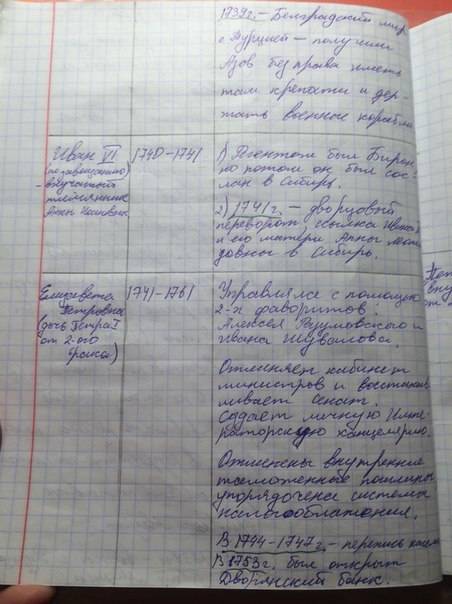 1739г. – Белградский мир
с Турцией – получили
Азов без права иметь
там крепости и дер-
жать военные корабли
Иван VI
(по завещанию)
- внучатый
племянник
Анны Иоановны
1740-1741
1) Регентом был Бирон,
но потом он был сос-
лан в Сибирь.
2) 1741 г. – дворцовый
переворот, ссылка Ивана
и его матери Анны
довны в Сибирь.
Елизавета
Петровна
(дочь Петра I
от 2-ого
брака)
1741-1761
Управляла с помощью
2-х фаворитов
Алексея Разумовского и
Ивана Шувалова.
Отменяет кабинет
министров и восстанав-
ливает сенат.
Создает личную Импе-
раторскую канцелярию.
Отменены внутренние
таможенные пошлины
упорядочена система
налогообложения.
В 1744-1747г. – перепись
В 1753г. был открыт
Дворянский банк.